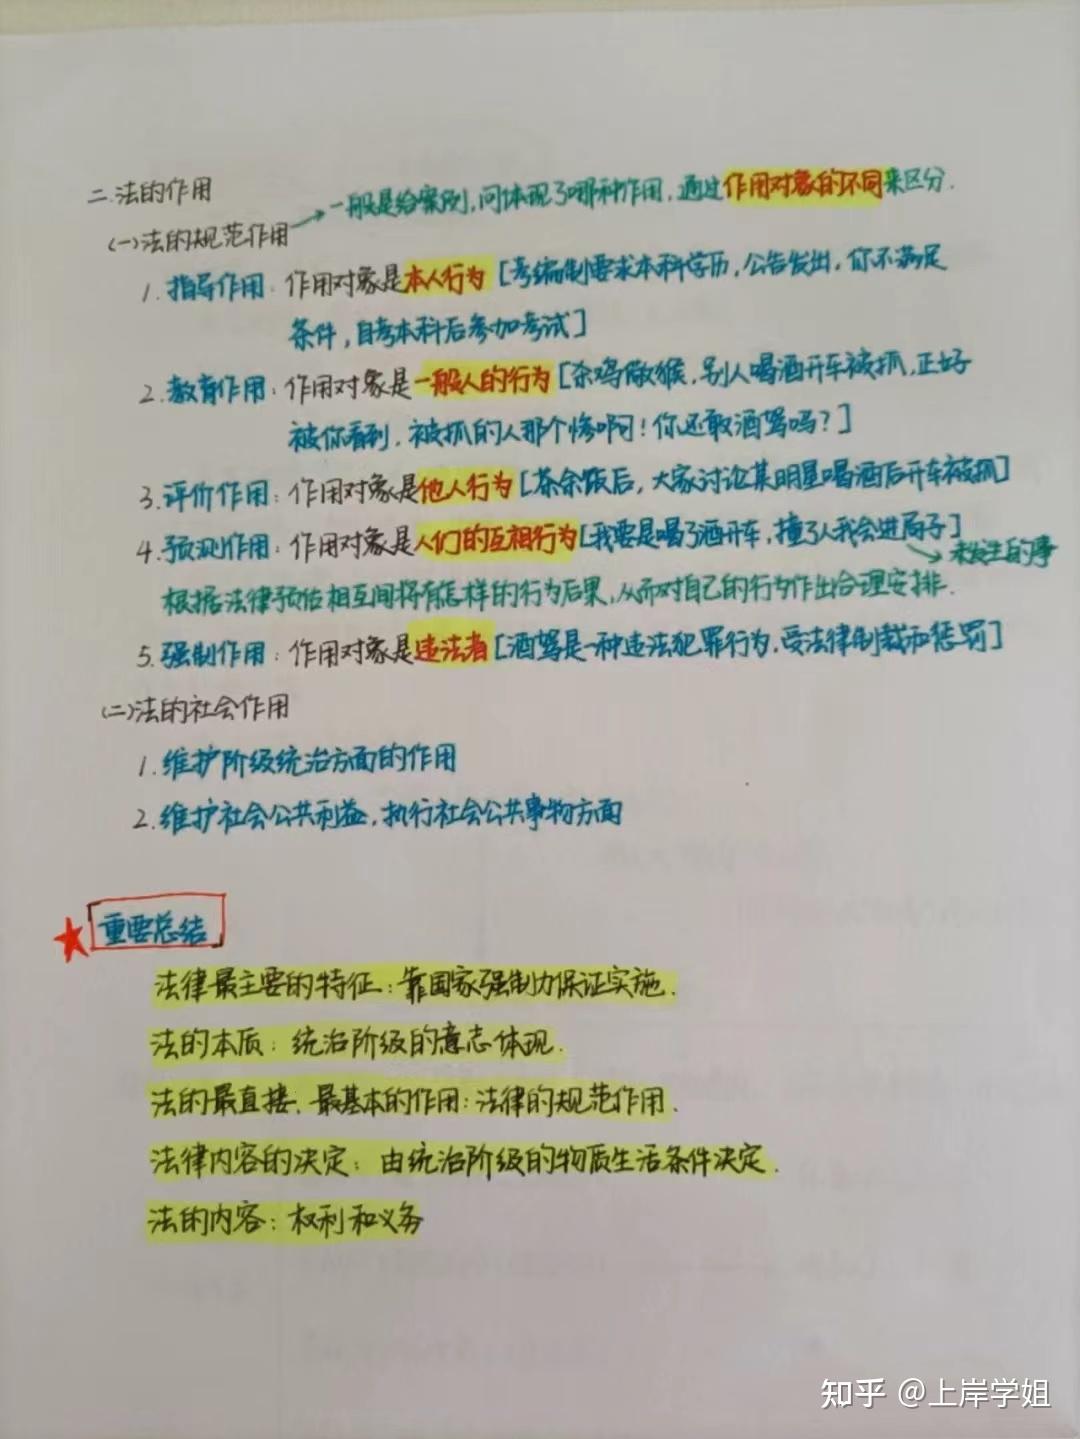 二.法的作用
一般是给案例,问体现了哪种作用,通过作用对象的不同来区分.
(一)法的规范作用
1.指导作用:作用对象是本人行为[考编制要求本科学历,公告发出,你不满足
条件,自考本科后参加考试]
2.教育作用:作用对象是一般人的行为[杀鸡儆猴,别人喝酒开车被抓,正好
被你看到,被抓的人那个惨啊!你还敢酒驾吗?]
3.评价作用:作用对象是他人行为[茶余饭后,大家讨论某明星喝酒后开车被抓]
4.预测作用:作用对象是人们的互相行为[我要是喝了酒开车,撞了人我会进局子]
未发生的事
根据法律预估相互间将有怎样的行为后果,从而对自己的行为作出合理安排.
5.强制作用:作用对象是违法者[酒驾是一种违法犯罪行为,受法律制裁和惩罚]
(二)法的社会作用
1.维护阶级统治方面的作用
2.维护社会公共利益,执行社会公共事物方面
重要总结
法律最主要的特征:靠国家强制力保证实施.
法的本质:统治阶级的意志体现.
法的最直接、最基本的作用:法律的规范作用.
法律内容的决定:由统治阶级的物质生活条件决定.
法的内容:权利和义务
知乎 @上岸学姐